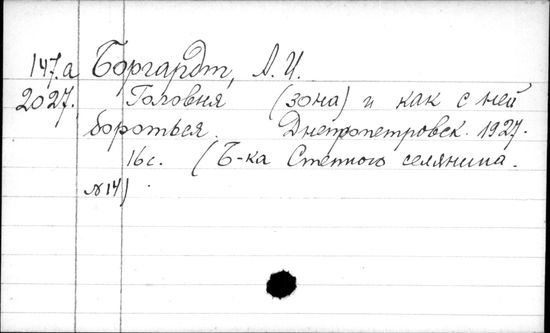 147.а Боргардт, А. И.
2027. Головня (зона) и как с ней
бороться. Днепропетровск. 1927.
16 с. (Б-ка Степного селянина.
№ 14).